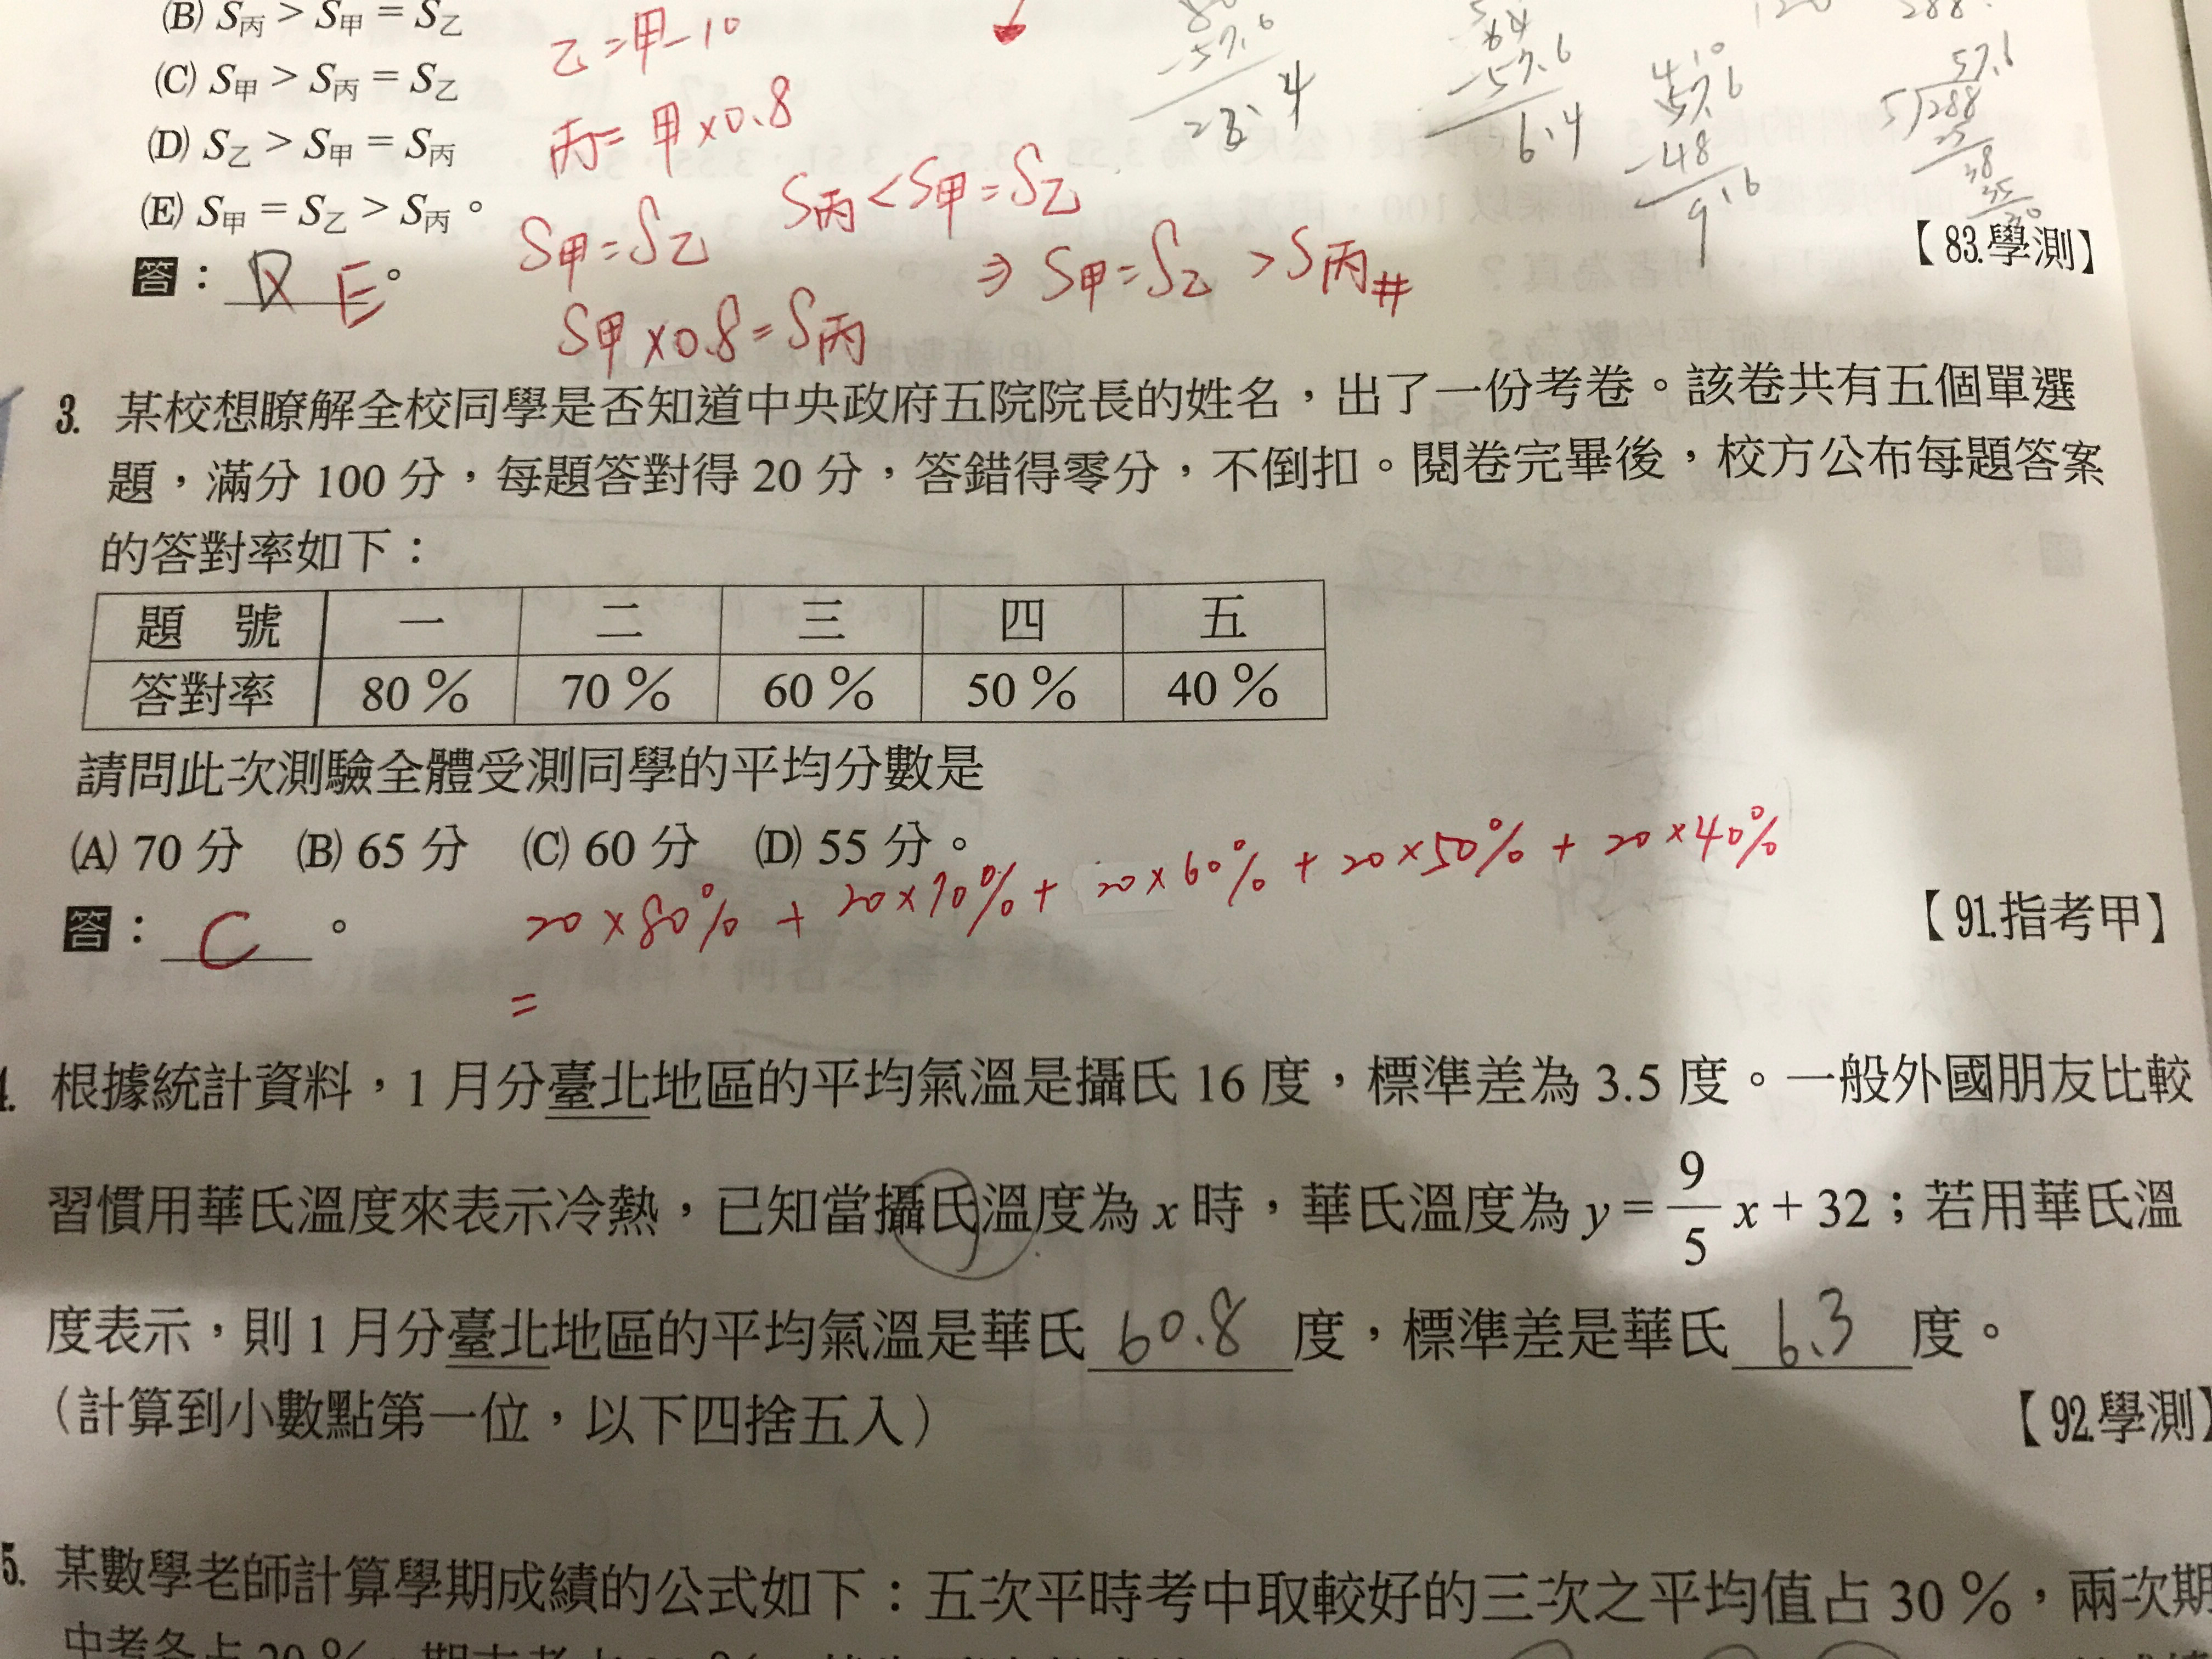 (B) S丙 > S甲 = S乙
(C) S甲 > S丙 = S乙
(D) S乙 > S甲 = S丙
(E) S甲 = S乙 > S丙。
答：E。
【83.學測】
乙=甲-10
丙=甲×0.8
S甲=S乙
S甲×0.8=S丙
S丙<S甲=S乙
⇒ S甲=S乙 >S丙#
-57.6
-57.6
6.4
57.6
-48
9.6
57.6
5)288
3. 某校想瞭解全校同學是否知道中央政府五院院長的姓名，出了一份考卷。該卷共有五個單選
題，滿分 100 分，每題答對得 20 分，答錯得零分，不倒扣。閱卷完畢後，校方公布每題答案
的答對率如下：
題 號 一 二 三 四 五
答對率 80％ 70％ 60％ 50％ 40％
請問此次測驗全體受測同學的平均分數是
(A) 70 分 (B) 65 分 (C) 60 分 (D) 55 分。
20×80% + 20×70% + 20×60% + 20×50% + 20×40%
=
答：C。
【91.指考甲】
4. 根據統計資料，1 月分臺北地區的平均氣溫是攝氏 16 度，標準差為 3.5 度。一般外國朋友比較
習慣用華氏溫度來表示冷熱，已知當攝氏溫度為 x 時，華氏溫度為 y = 9/5 x + 32；若用華氏溫
度表示，則 1 月分臺北地區的平均氣溫是華氏 60.8 度，標準差是華氏 6.3 度。
（計算到小數點第一位，以下四捨五入）
【92.學測】
5. 某數學老師計算學期成績的公式如下：五次平時考中取較好的三次之平均值占 30％，兩次期
中考各占 20％